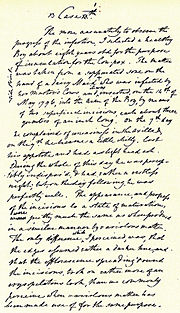 Case
The more accurately to observe the
progress of the infection, I selected a healthy
Boy about eight years old for the purpose
of inoculation for the Cow pox. The matter
was taken from a suppurated sore on the
hand of a dairy maid who was infected by
her Masters Cows, and inserted on the 14th of
May 1796, into the arm of the Boy by means
of two superficial incisions, each about three
quarters of an inch long. On the 7th day
he complained of uneasiness in the axilla, &
on the 9th he became a little chilly, lost
his appetite, and had a slight headach.
During the whole of this day he was percep-
tibly indispos'd, & had rather a restless
night; but on the day following he was
perfectly well. The appearance and progress
of the incisions to a state of maturation,
were pretty much the same as when produced
in a similar manner by variolous matter.
The only difference which I perceived, was that
the edges assumed rather a darker hue, and
that the efflorescence spreading round
the incisions, took on rather more of an
erysipelatous look, than we commonly
perceive when variolous matter has
been made use of for the same purpose.